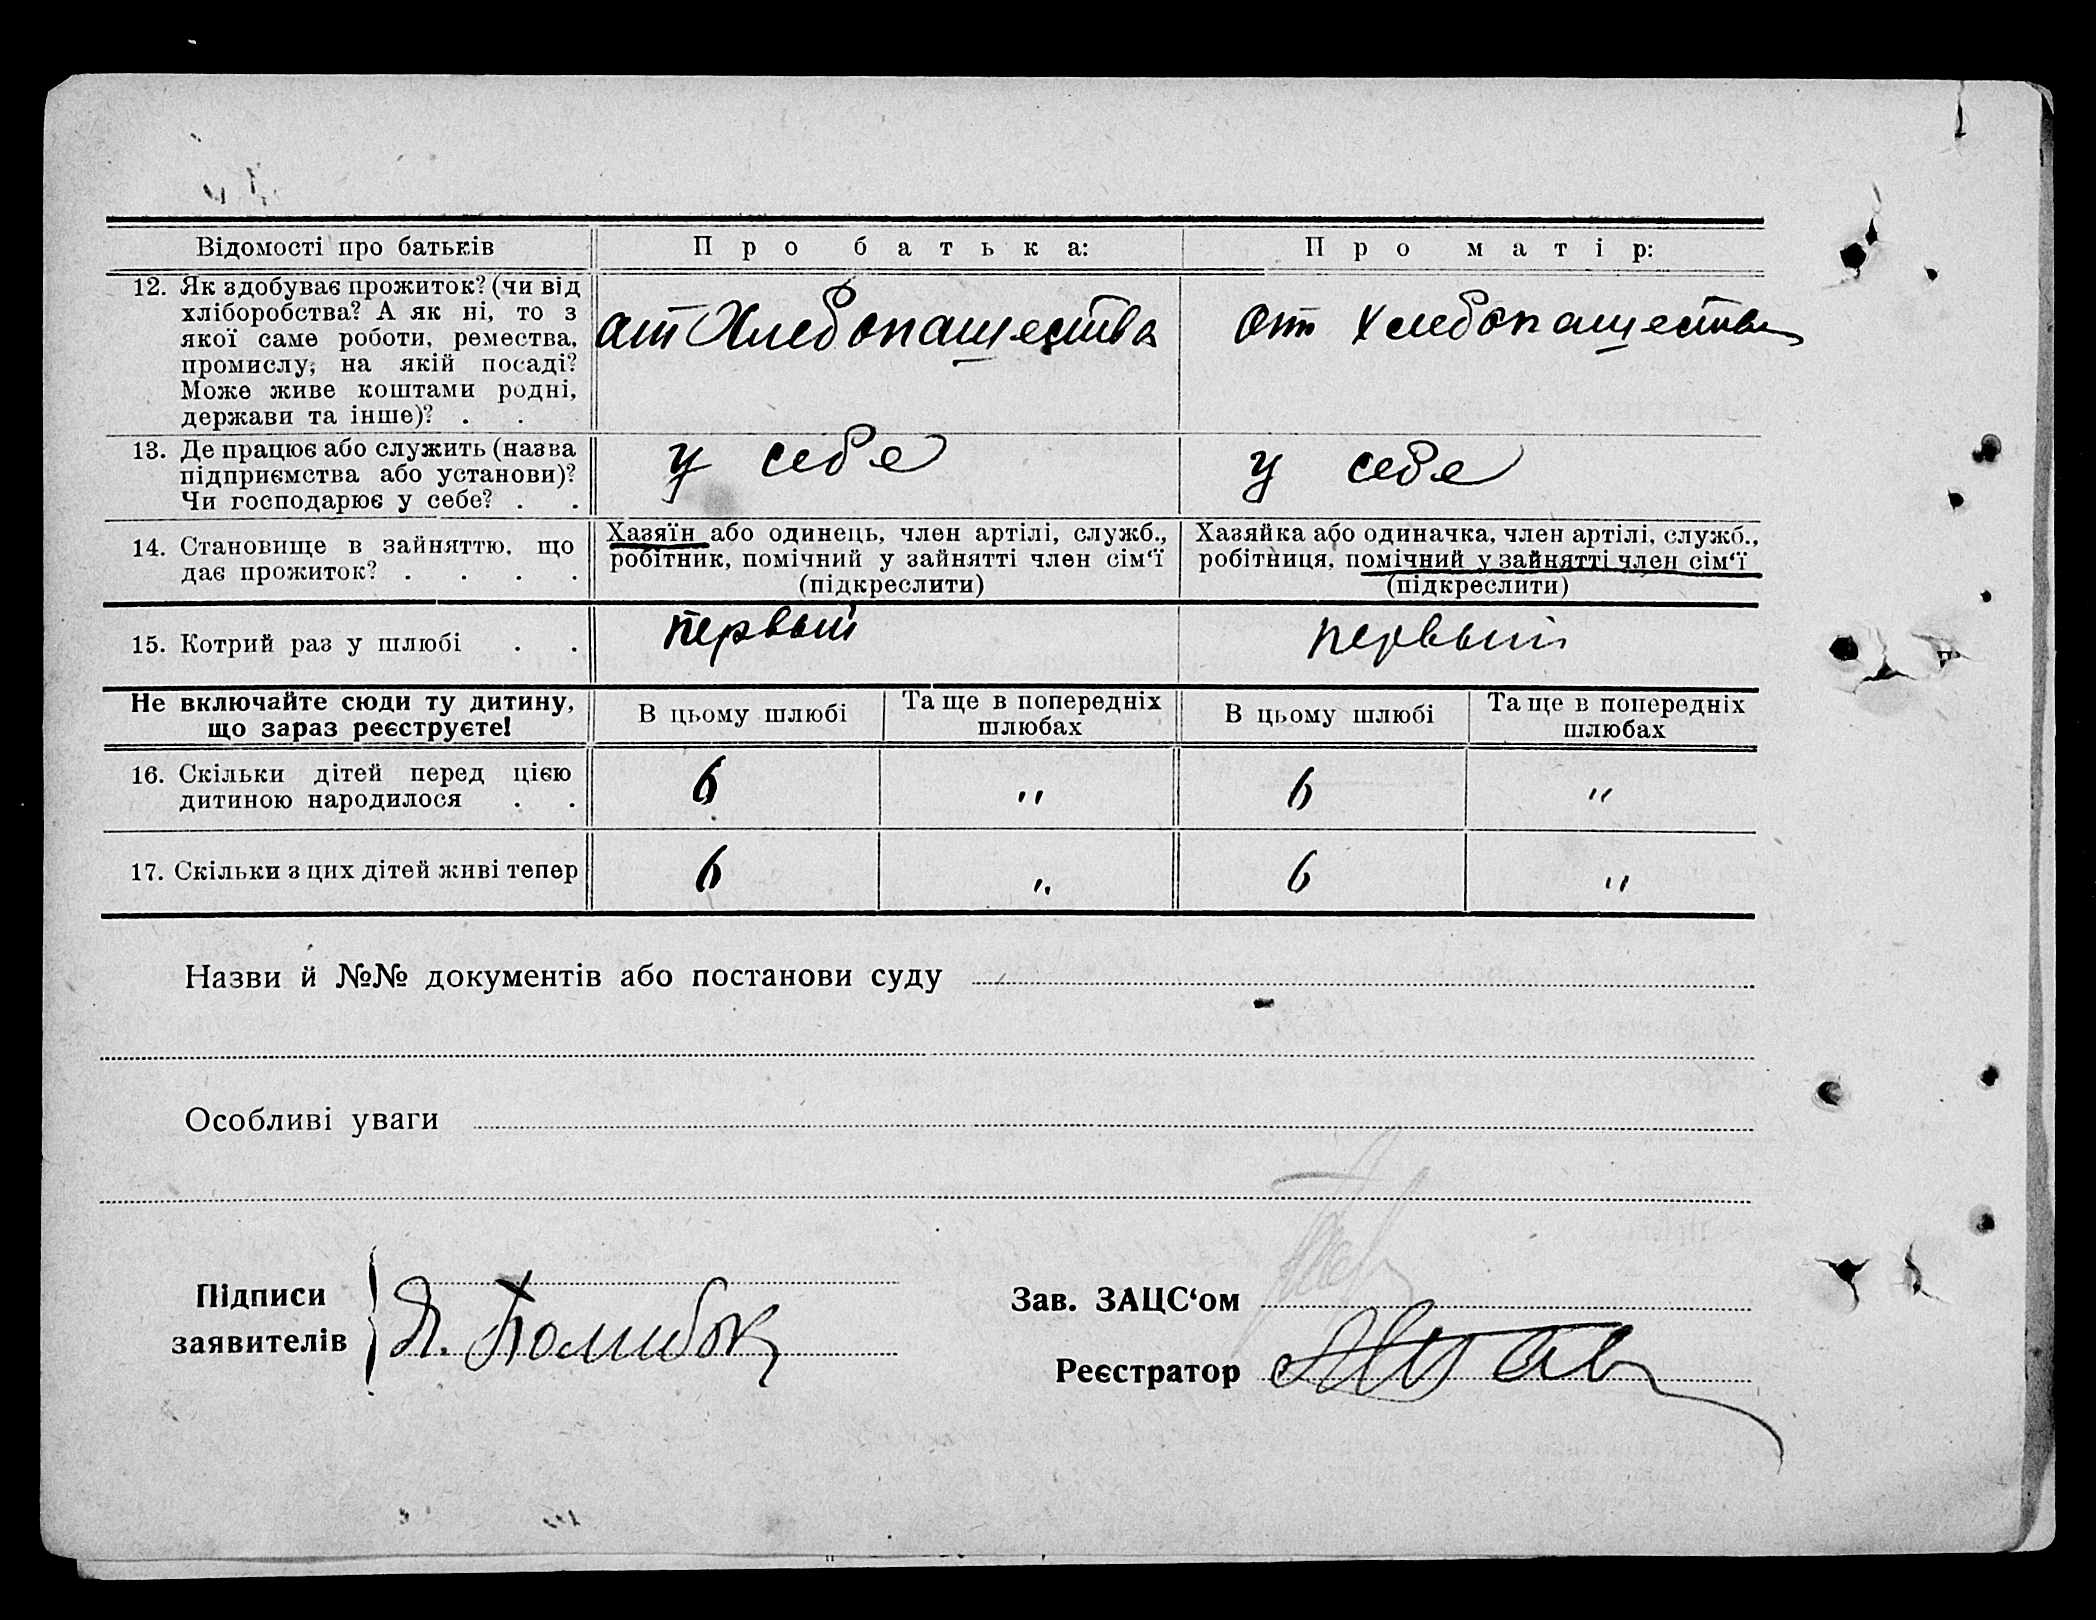 Відомості про батьків
П р о б а т ь к а:
П р о м а т і р:
12. Як здобуває прожиток? (чи від
хліборобства? А як ні, то з
якої саме роботи, ремества,
промислу, на якій посаді?
Може живе коштами родні,
держави та інше)? . .
от Хлебопашества
от Хлебопашества
13. Де працює або служить (назва
підприємства або установи)?
Чи господарює у себе? . .
у себя
у себя
14. Становище в зайняттю, що
дає прожиток? . . . .
Хазяїн або одинець, член артілі, служб.,
робітник, помічний у зайнятті член сім‘ї
(підкреслити)
Хазяйка або одиначка, член артілі, служб.,
робітниця, помічний у зайнятті член сім‘ї
(підкреслити)
15. Котрий раз у шлюбі . .
первый
первый
Не включайте сюди ту дитину,
що зараз реєструєте!
В цьому шлюбі
Та ще в попередніх
шлюбах
В цьому шлюбі
Та ще в попередніх
шлюбах
16. Скільки дітей перед цією
дитиною народилося . .
6
"
6
"
17. Скільки з цих дітей живі тепер
6
"
6
"
Назви й №№ документів або постанови суду
Особливі уваги
Підписи
заявителів
Зав. ЗАЦС‘ом
Реєстратор